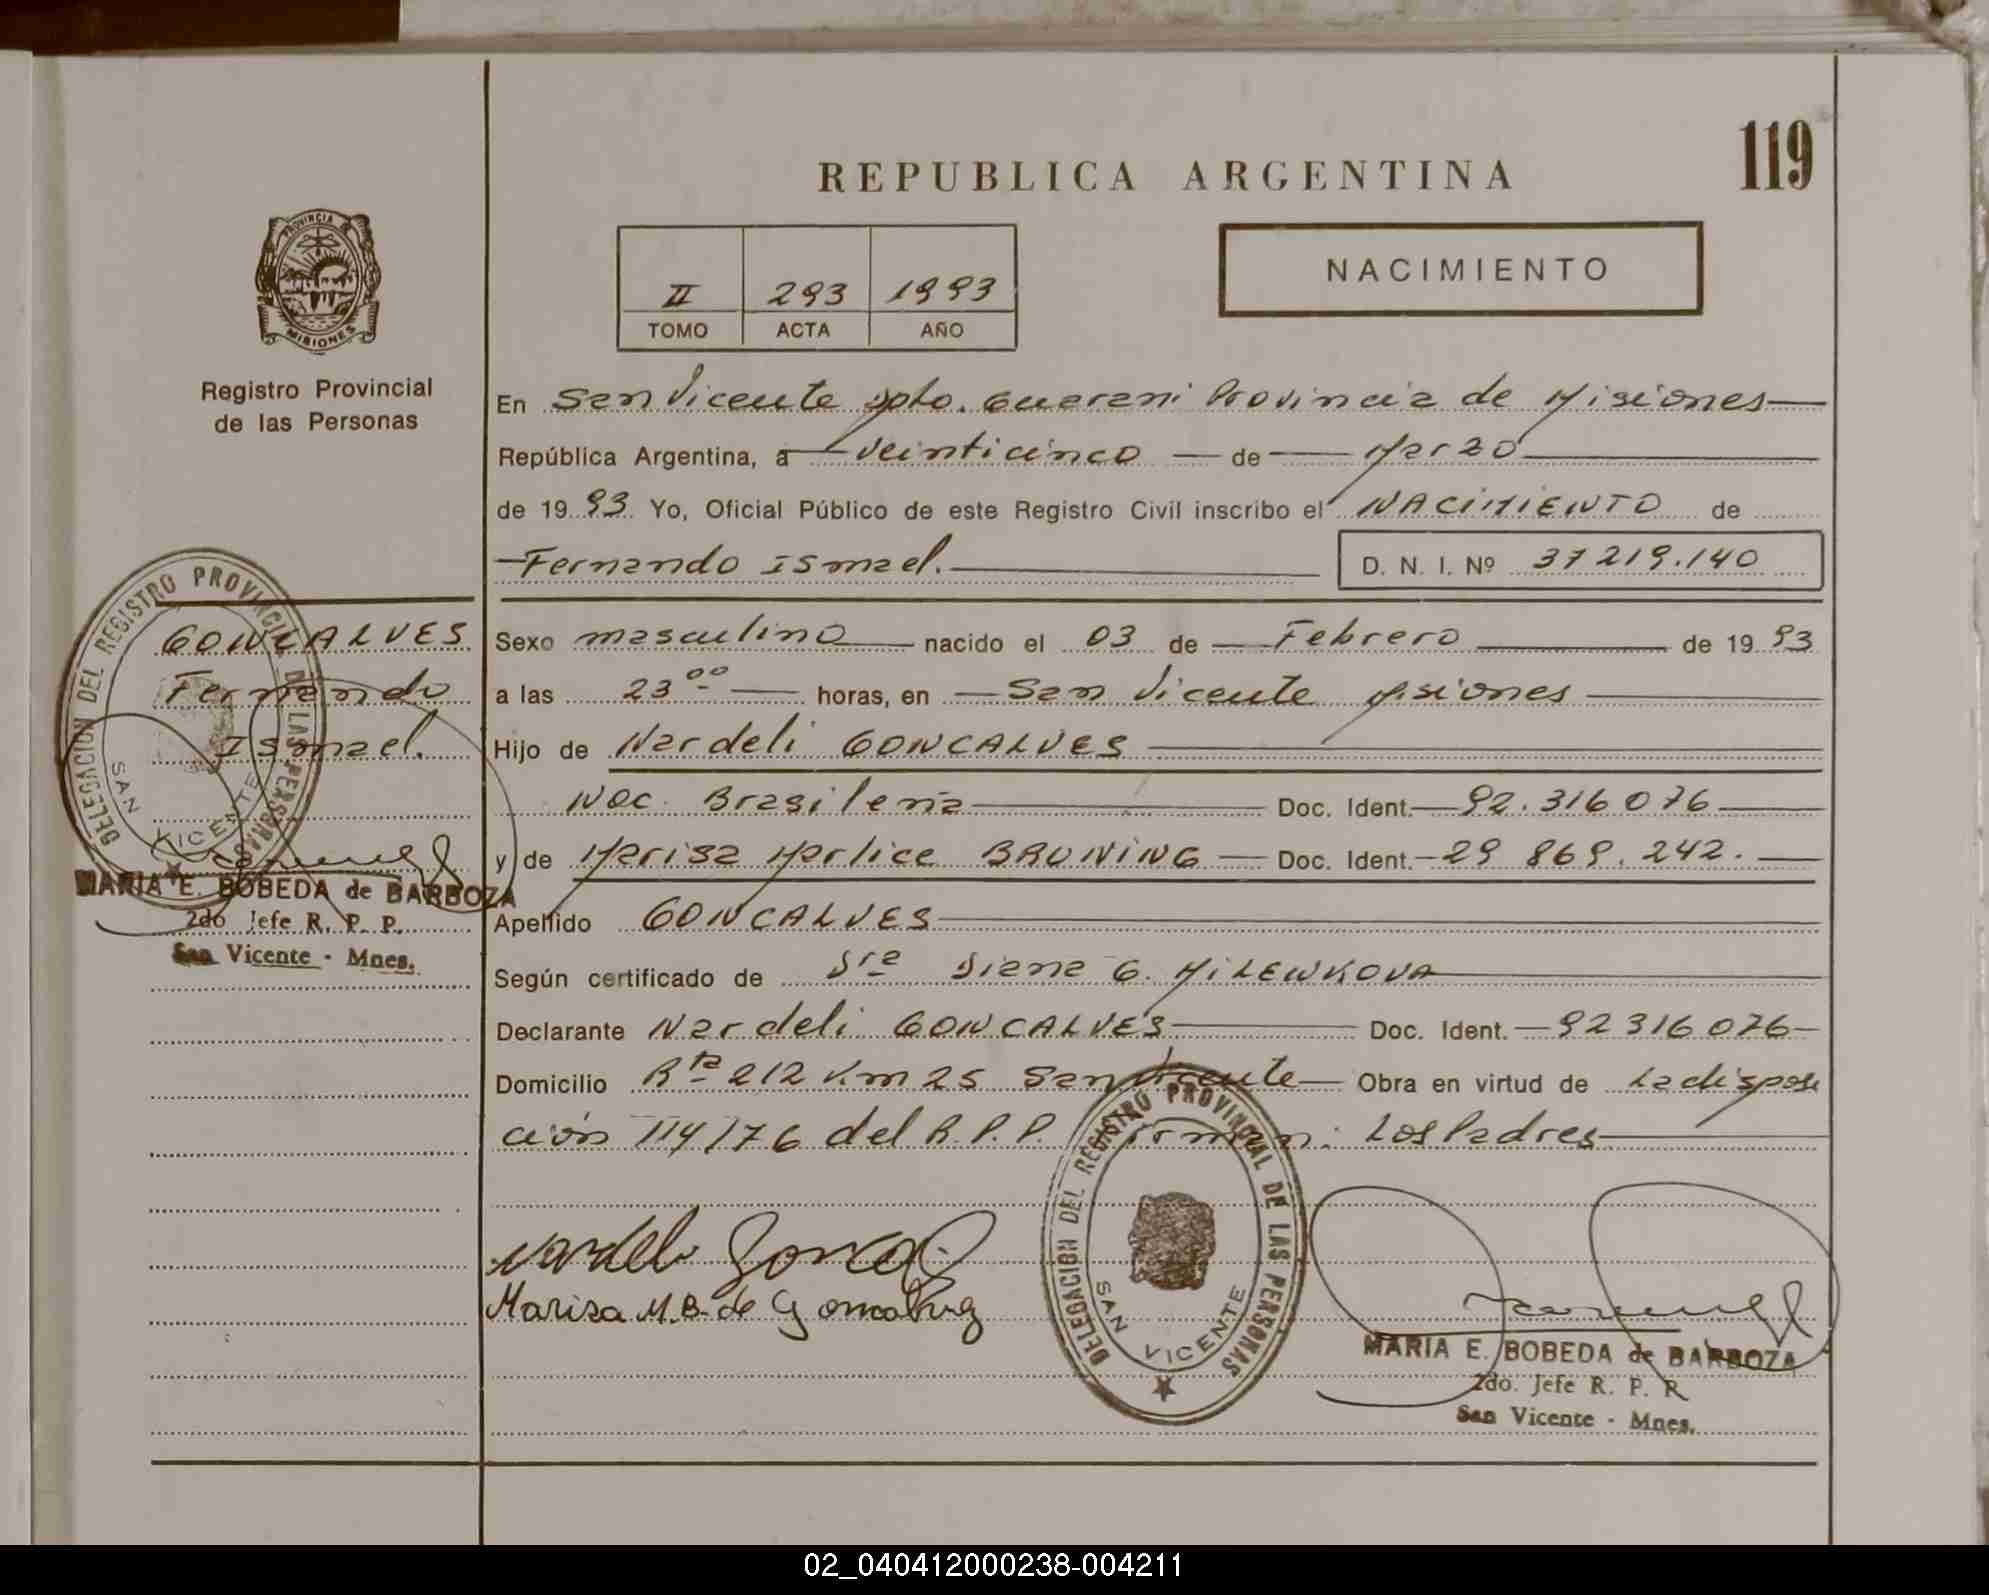 119
REPUBLICA ARGENTINA
PROVINCIA DE
MISIONES
Registro Provincial
de las Personas
II 293 1993
TOMO ACTA AÑO
NACIMIENTO
En San Vicente Dpto. Guarani Provincia de Misiones
República Argentina, a veinticinco de Marzo
de 1993 Yo, Oficial Público de este Registro Civil inscribo el NACIMIENTO de
Fernando Ismael.
D. N. I. Nº 37219.140
GONCALVES
Fernando
Ismael.
DELEGACION DEL REGISTRO PROVINCIAL DE LAS PERSONAS
SAN VICENTE
MARIA E. BOBEDA de BARBOZA
2do Jefe R. P. P.
San Vicente - Mnes.
Sexo masculino nacido el 03 de Febrero de 1993
a las 23 00 horas, en San Vicente Misiones
Hijo de Nardeli GONCALVES
Nac. Brasileña Doc. Ident. 92.316076
y de Marisa Marlice BRUNING Doc. Ident. 29 869.242.
Apellido GONCALVES
Según certificado de Sra Diana G. MILEWKOVA
Declarante Nardeli GONCALVES Doc. Ident. 92316076
Domicilio Rta 212 Km 25 San Vicente Obra en virtud de La disposi
ción 114/76 del R.P.P. Firman: Los Padres
Nardeli
Mariza M.B. de Goncalves
DELEGACION DEL REGISTRO PROVINCIAL DE LAS PERSONAS
SAN VICENTE
MARIA E. BOBEDA de BARBOZA
2do. Jefe R. P. R
San Vicente - Mnes.
02_040412000238-004211